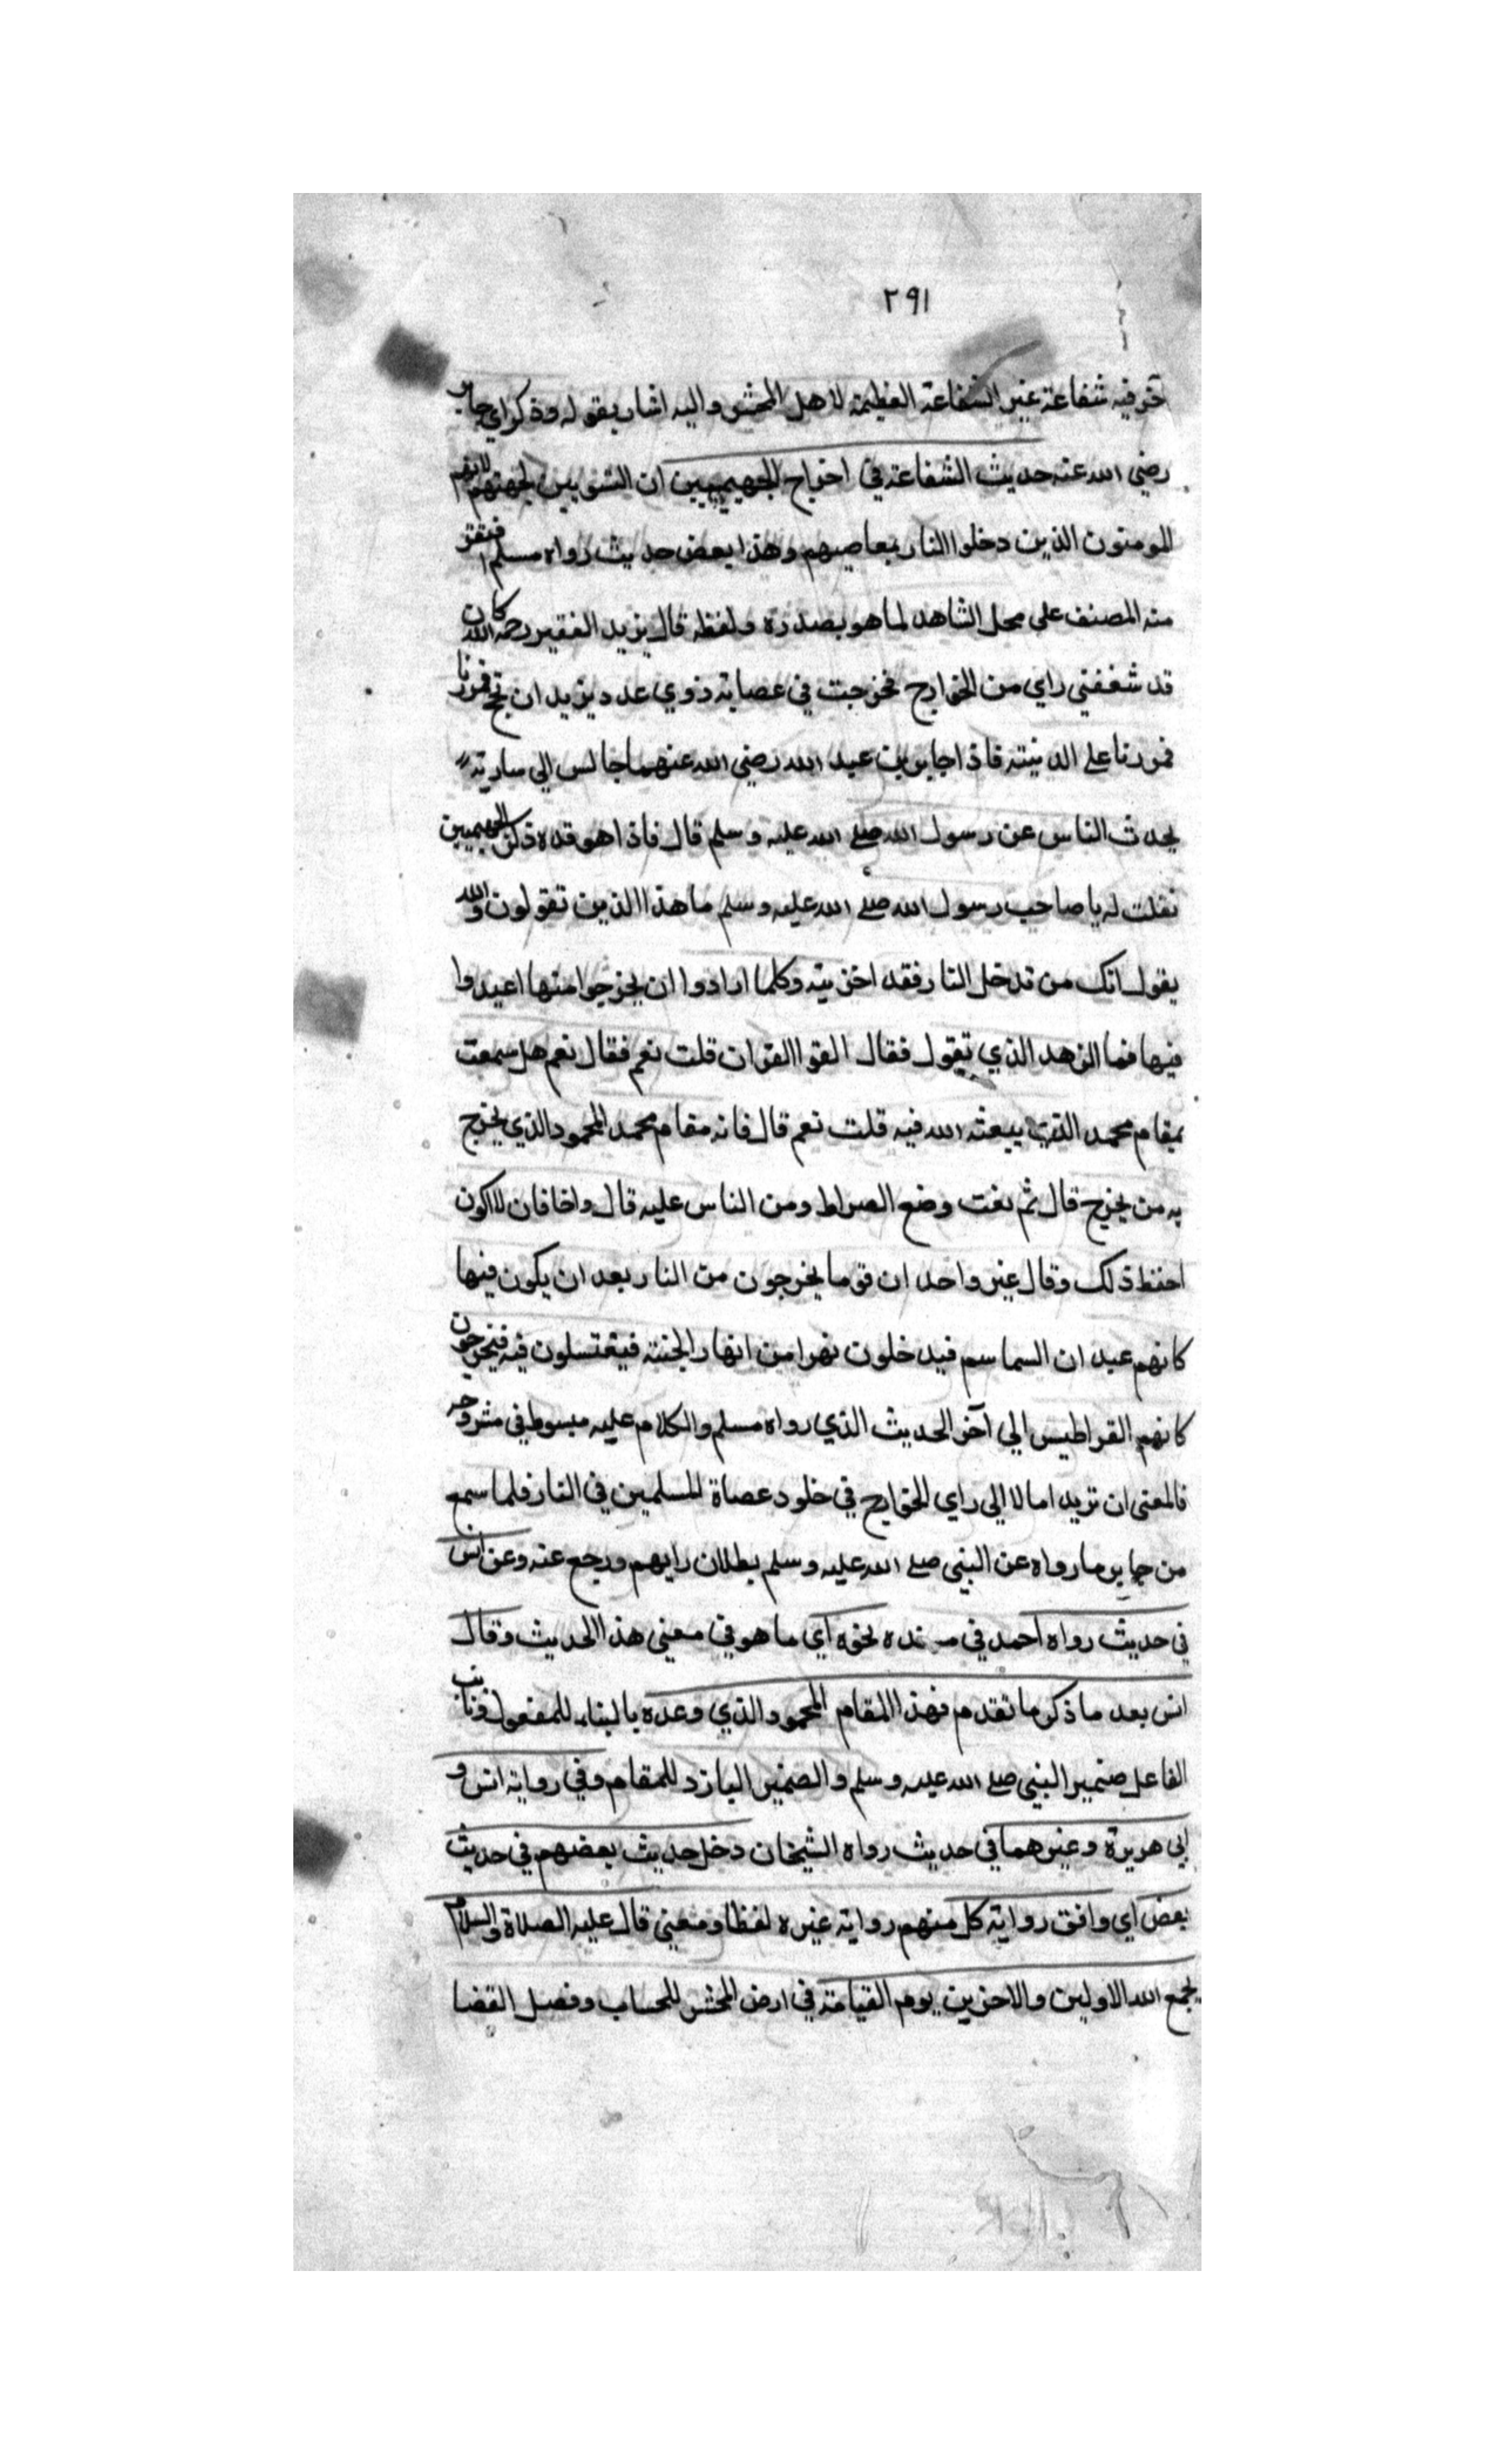 ٢٩١
آخر فيه شفاعة غير الشفاعة العظيمة لاهل المحشر واليه اشار بقوله وذكر اي جابر
رضي الله عنه حديث الشفاعة في اخراج الجهيميين ان النسوبين لجهنم لانهم
المومنون الذين دخلوا النار بمعاصيهم وهذا بعض حديث رواه مسلم
منه المصنف على محل الشاهد لما هو بصدره ولفظه قال يزيد الفقير رحمه الله كان
قد شغفني راي من الخوارج فخرجت في عصابة ذوي عدد يزيد ان نحج
فمررنا على المدينة فاذا جابر بن عبد الله رضي الله عنهما جالس الي سارية
يحدث الناس عن رسول الله صلى الله عليه وسلم قال فاذا هو قده ذكر الجهيميين
فقلت له يا صاحب رسول الله صلى الله عليه وسلم ما هذا الذين تقولون والله
يقول انك من تدخل النار فقد اخزيته وكلما ارادوا ان يخرجوا منها اعيدوا
فيها فما الزهد الذي تقول فقال القوا القران قلت نعم فقال نعم هل سمعت
بمقام محمد الذي يبعثه الله فيه قلت نعم قال فانه مقام محمد المحمود الذي يخرج
به من يخرج قال ثم نعت وضع الصراط ومن الناس عليه قال واخافان لا اكون
احفظ ذلك وقال غير واحد ان قوما يخرجون من النار بعد ان يكون فيها
كانهم عيد ان السماسم فيدخلون نهرا من انهار الجنة فيغتسلون فيه فيخرجون
كانهم القراطيس الي آخر الحديث الذي رواه مسلم والكلام عليه مبسوط في شروحه
فالمعنى ان تزيد امالا الى راي الخوارج في خلود عصاة المسلمين في النار فلما سمع
من جابر ما رواه عن النبي صلى الله عليه وسلم بطلان رايهم ورجع عنه وعن انس
في حديث رواه احمد في مسنده نحوه اي ما هو في معني هذا الحديث وقال
انس بعد ما ذكر ما تقدم فهذا المقام المحمود الذي وعده بالبناء للمفعول ونايب
الفاعل ضمير النبي صلى الله عليه وسلم والضمير البارز للمقام وفي رواية انس و
ابي هريرة وغيرهما في حديث رواه الشيخان دخل حديث بعضهم في حديث
بعض اي وافق رواية كل منهم رواية غيره لفظا ومعني قال عليه الصلاة والسلام
يجمع الله الاولين والاخرين يوم القيامة في ارض المحشر للحساب وفصل القضا